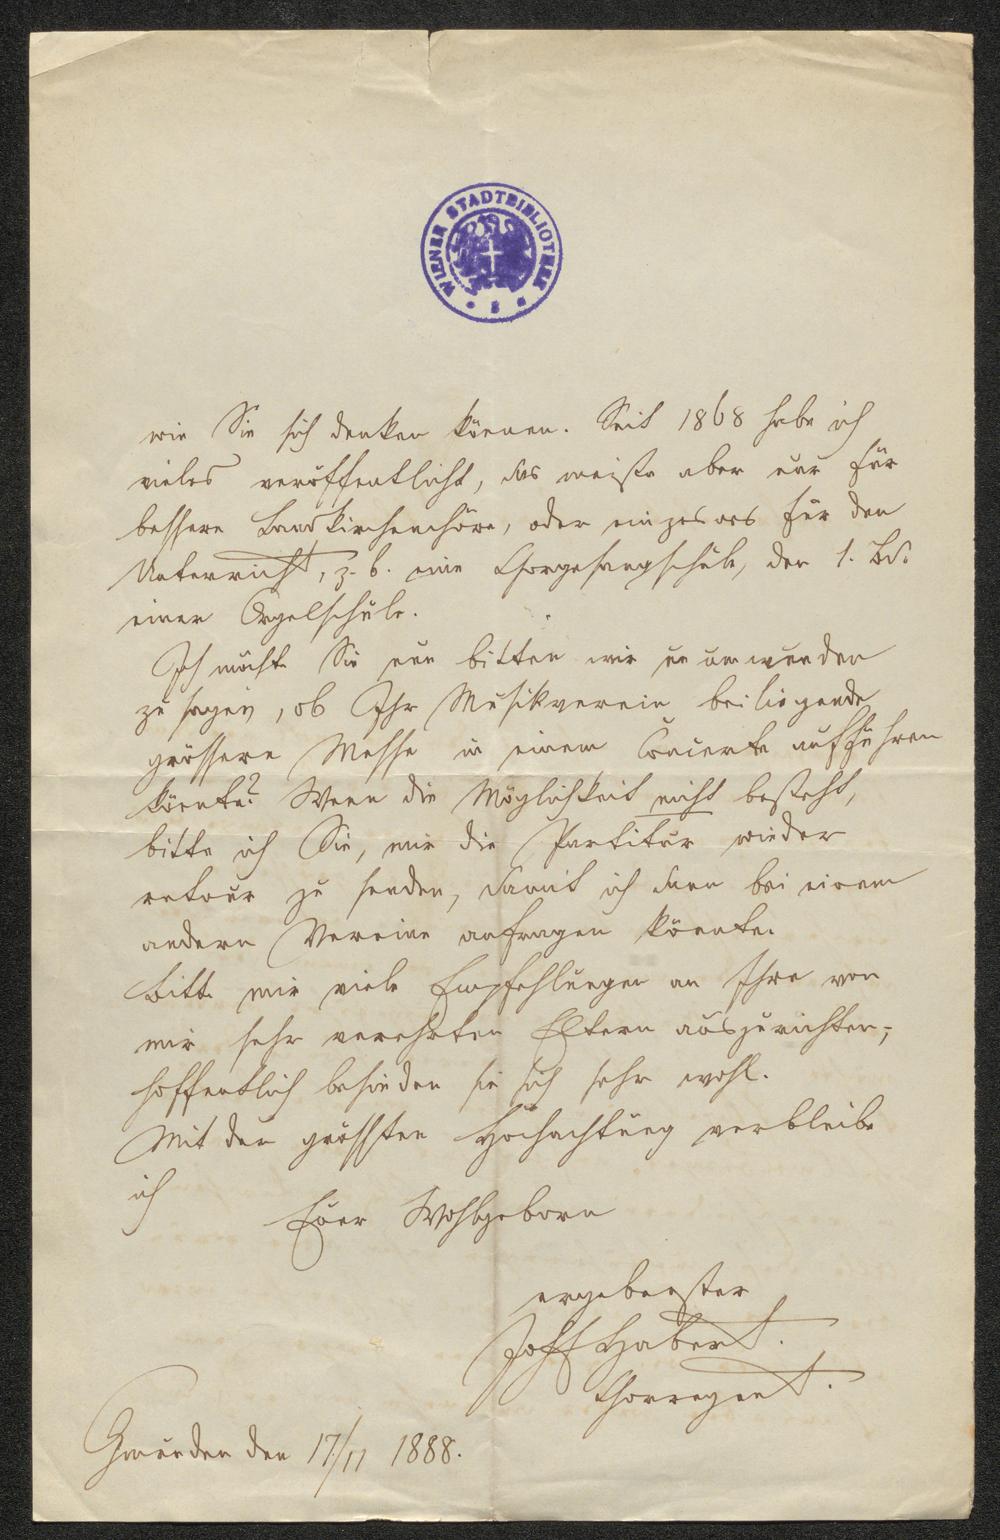 WIENER STADTBIBLIOTHEK
wie Sie sich denken können. Seit 1868 habe ich
vieles veröffentlicht, das meiste aber nur für
bessere Landkirchenchöre, oder einzelnes für den
Unterricht, z. b. eine Chorgesangschule, den 1. Bd.
einer Orgelschule.
Ich möchte Sie nun bitten mir unumwunden
zu sagen, ob Ihr Musikverein beiliegende
grössere Messe in einem Concerte aufführen
könnte? Wenn die Möglichkeit nicht besteht,
bitte ich Sie, mir die Partitur wieder
retour zu senden, damit ich dann bei einem
andern Vereine anfragen könnte.
Bitte mir viele Empfehlungen an Ihre von
mir sehr verehrten Eltern auszurichten;
hoffentlich befinden sie sich sehr wohl.
Mit der grössten Hochachtung verbleibe
ich
Euer Wohlgeborn
ergebenster
Joh Habert.
Chorregent.
Gmunden den 17/11 1888.